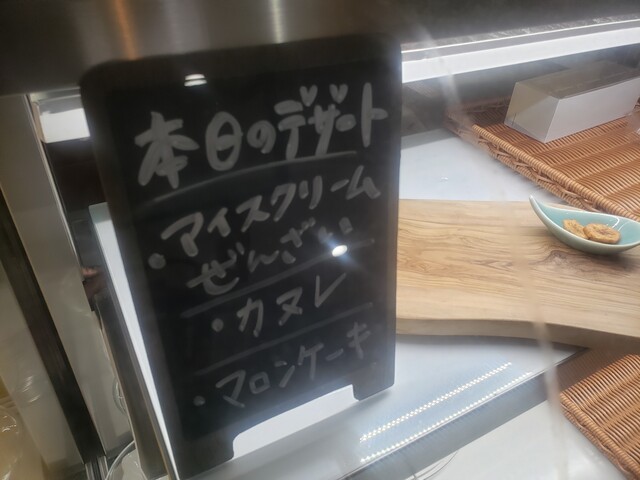 本日のデザート
・アイスクリーム
ぜんざい
・カヌレ
・マロンケーキ